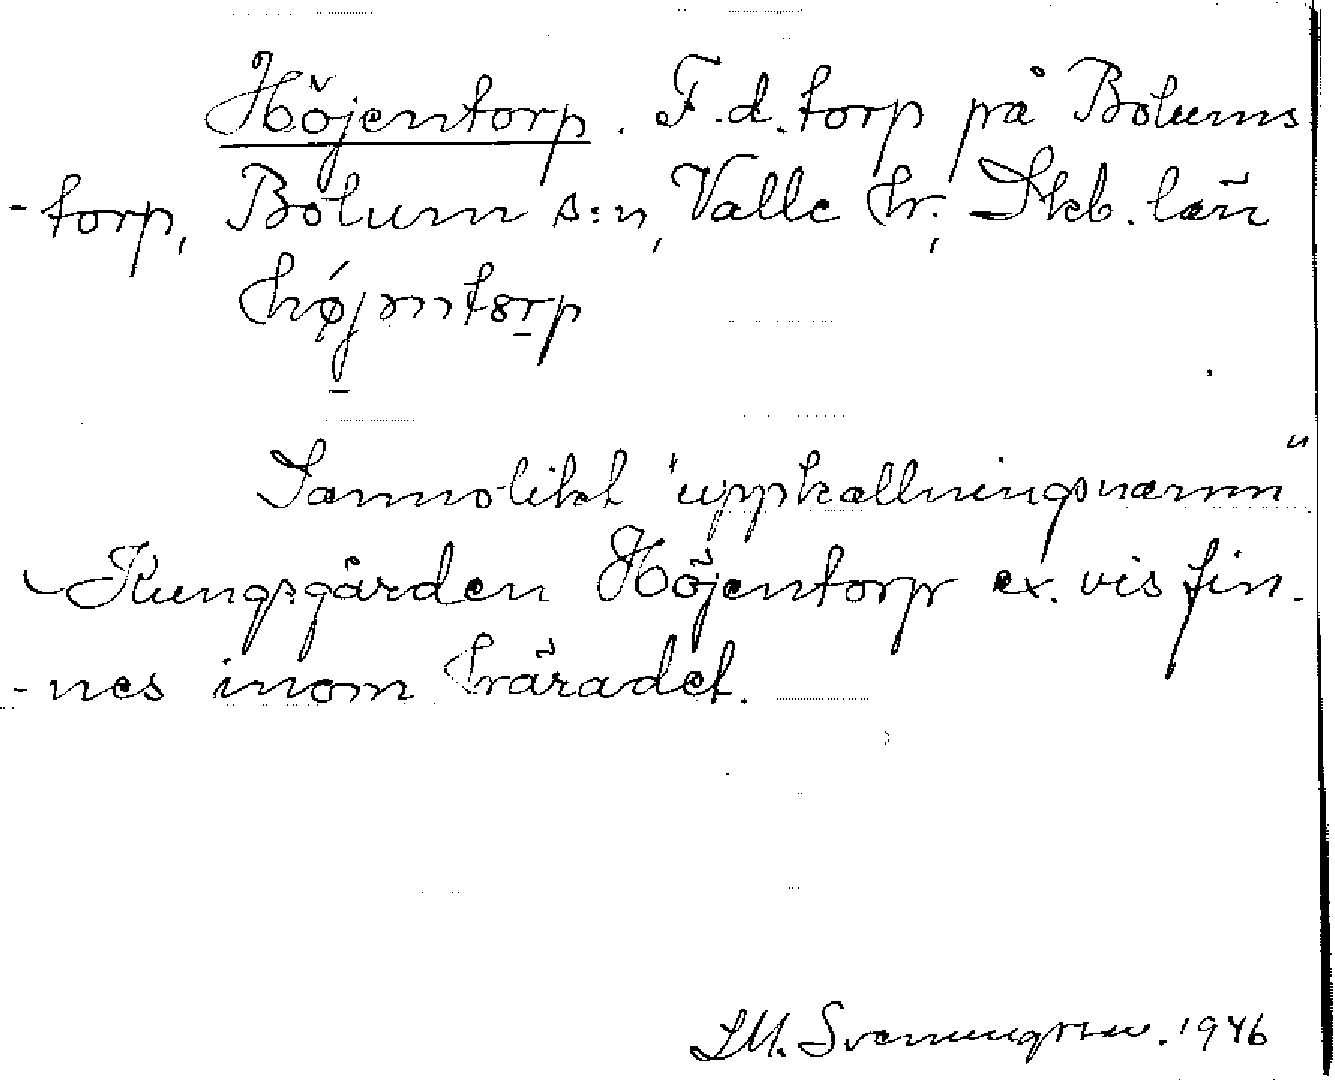 Höjentorp. F.d. torp på Bolums
-torp, Bolum s:n, Valle hr., Skb. län
Sannolikt "uppkallningsnamn"
Kungsgården Höjentorp ex. vis fin-
-nes inom häradet.
1946